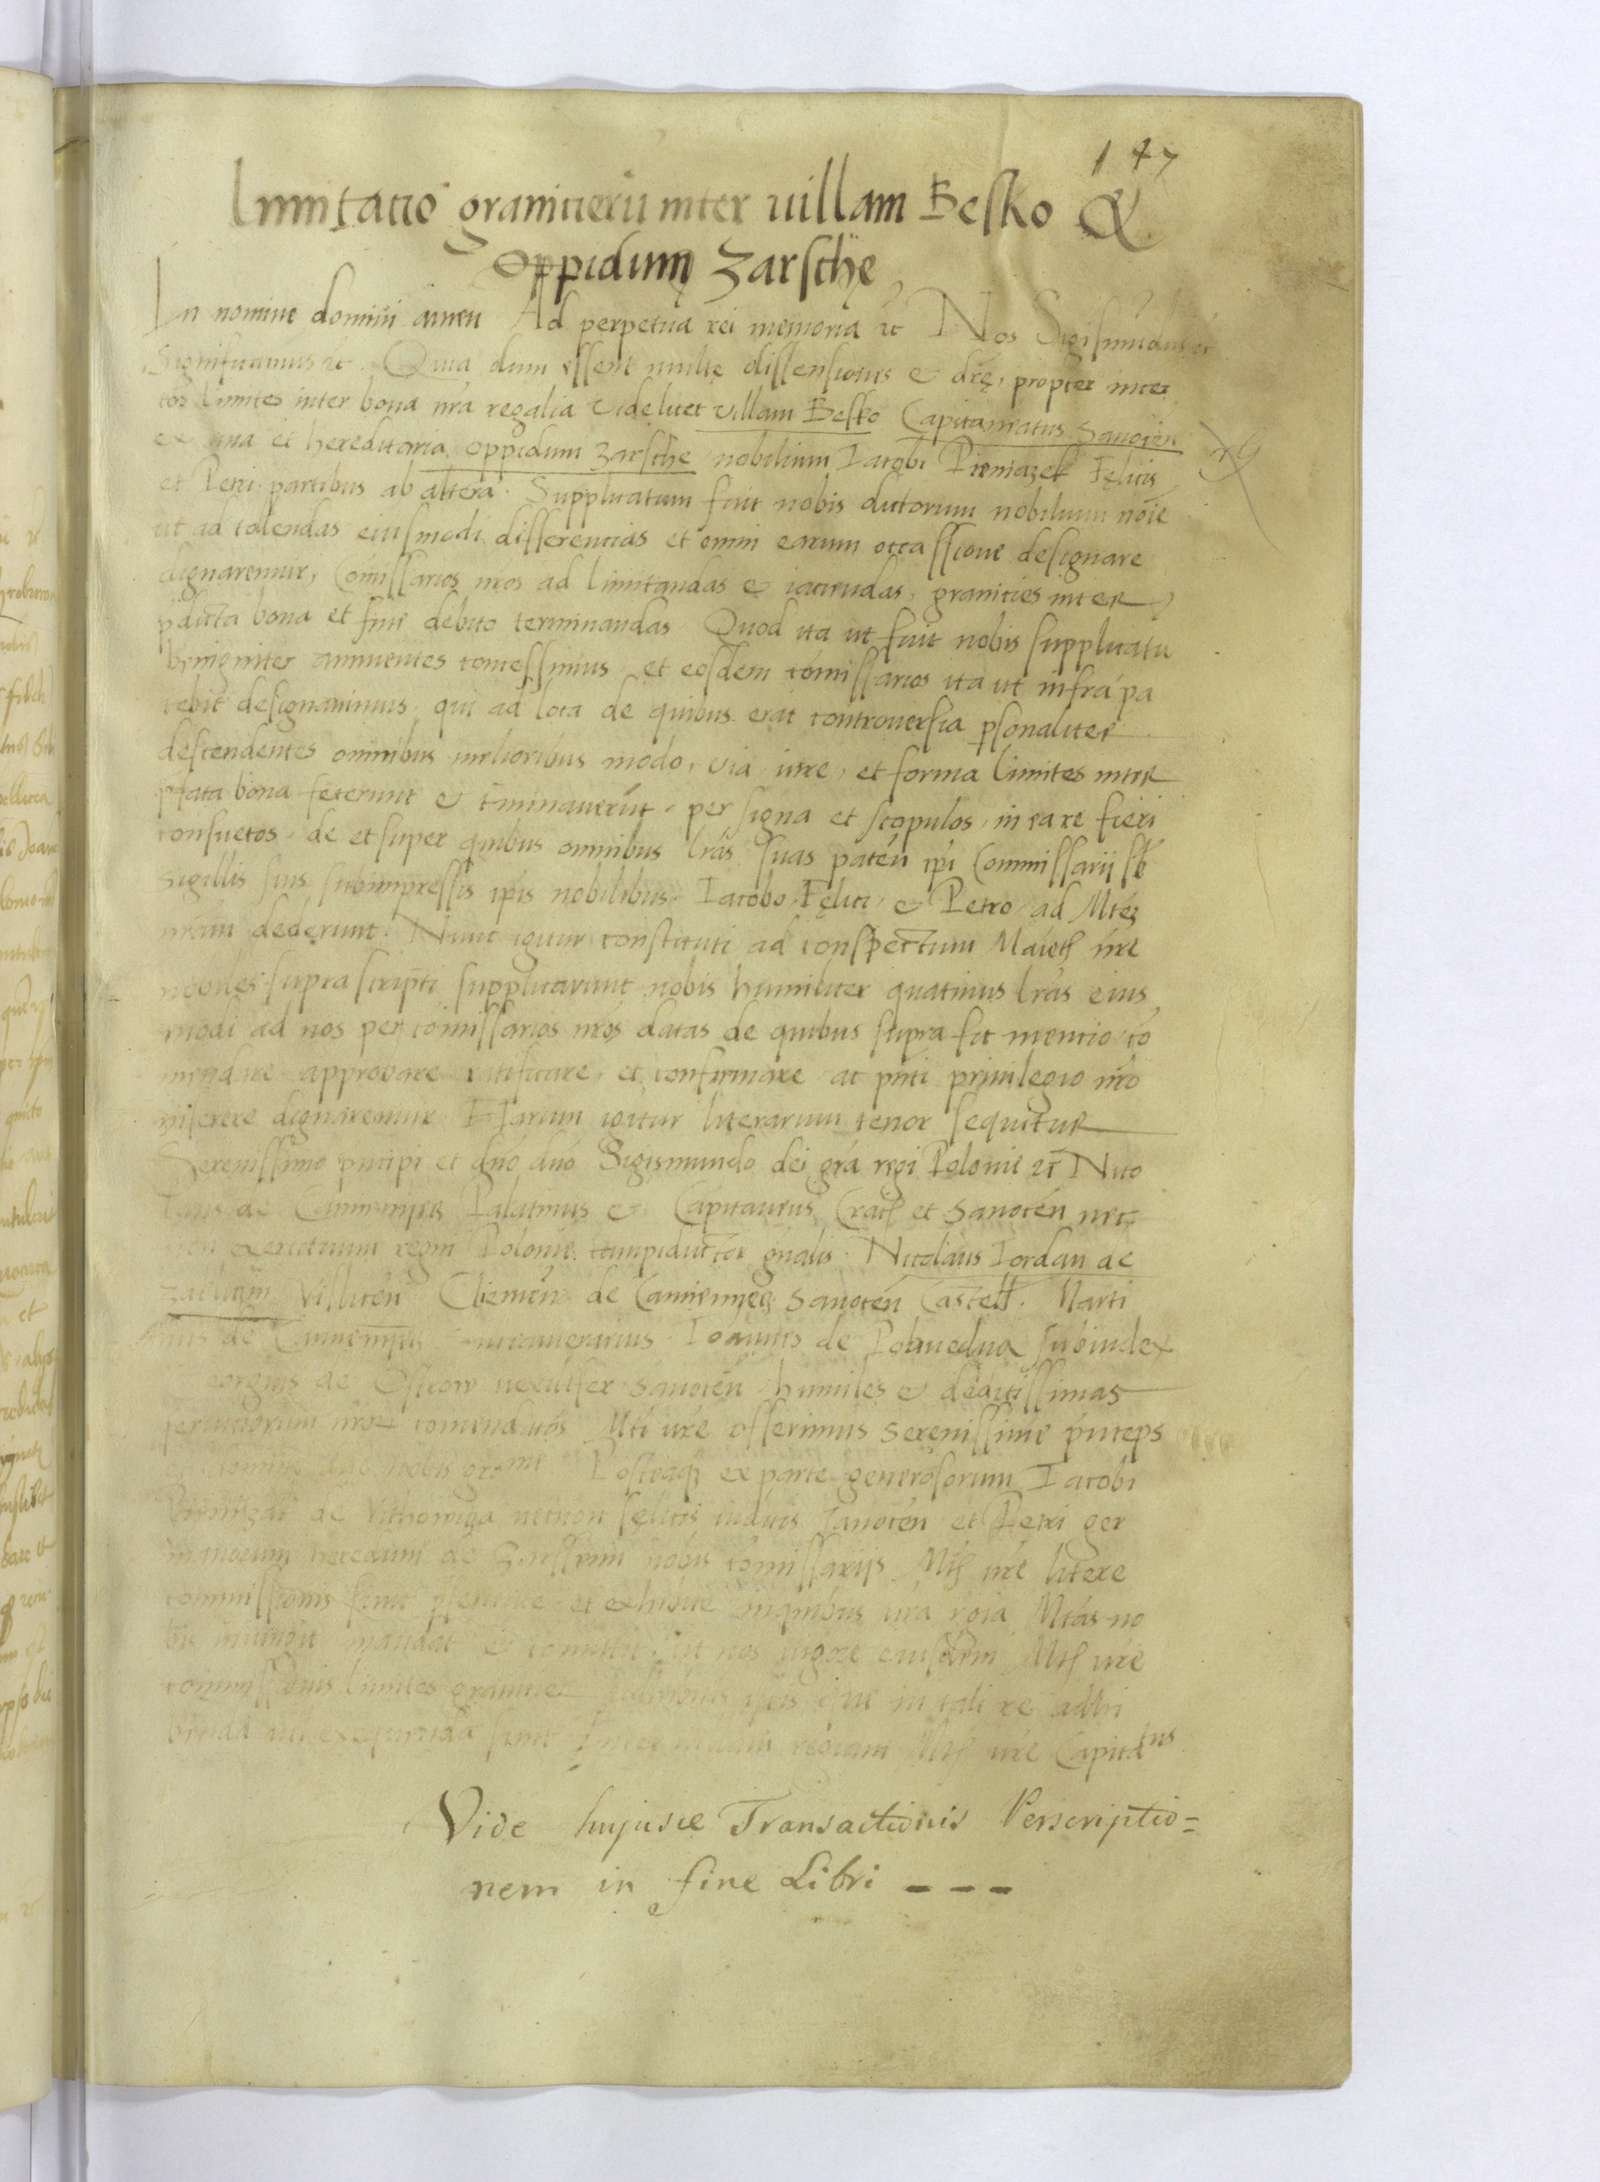 147
Limitatio granicierũ inter villam Besko &
Oppidum Zarsche
In nomine domini amen Ad perpetuã rei memoriã ꝛc Nos Sigismũdus ꝛc
Significamus ꝛc. Quia dum essent multe dissensiones & drẽ, propter incer
tos limites inter bona nrã regalia videlicet villam Besko Capitaneatus Sanocen
ex una et hereditaria oppidum Zarsche nobilium Iacobi Pieniazek Felicis
et Petri partibus ab altera. Supplicatum fuit nobis dictorum nobilium noĩe
ut ad tolendas eiusmodi differencias et omni earum occassione designare
dignaremur, Comissarios nros ad limitandas & iaciendas, granicies inter
pdicta bona et fine debito terminandas Quod ita ut fuit nobis supplicatũ
benigniter annuentes concessimus et eosdem comissarios ita ut infra pa
tebit designavimus qui ad loca de quibus erat controversia psonaliter
descendentes omnibus melioribus modo, via, iure, et forma limites inter
pfata bona fecerunt & tminaverũt, per signa et scopulos, in ea re fieri
consuetos, de et super quibus omnibus lrãs suas paten ipi Commissarii sb
sigillis suis subimpressis ipis nobilibus Iacobo Felici & Petro ad Mtẽ
nrãm dederunt. Nunc igitur constituti ad conspectum Maietis nre
nobiles supra scripti supplicarunt nobis humiliter quatinus lrãs eius
modi ad nos per comissarios nros datas de quibus supra fit mentio co
mendare approbare ratificare, et confirmare ac pnti privilegio nro
inserere dignaremur Harum igitur literarum tenor sequitur
Serenissimo pncipi et dno dno Sigismundo dei gra regi Polonie ꝛc Nico
laus de Camieniecz Palatinus & Capitaneus Crac et Sanocen nec
non exercituum regni Polonie campiductor gnalis. Nicolaus Iordan de
Zaklicin Vislicen Clemen de Camieniecz Sanocen Castell. Marti
nus de Camieniecz Ioannis de subiudex
eorgius de Ostrow vexilifer Sanocen humiles & deditissimas
servitiorum nror comendatiões Mti vre offerimus Serenissime pnceps
Posteaq ex parte generosorum Iacobi
Pieniazek de necnon felicis Sanocen et Petri ger
manorum heredum de nobis comissariis Mtis vre litere
commissionis sunt psentate et exhibite inquibus vra rgia Mtas no
bis iniungit mandat & comittit, ut nos vigore eiusdem Mtis vre
commissionis limites in tali re adhi
benda sunt regiam Mtis vre Capita
tus
Vide hujusce Transactionis Perscriptio=
nem in fine Libri ---